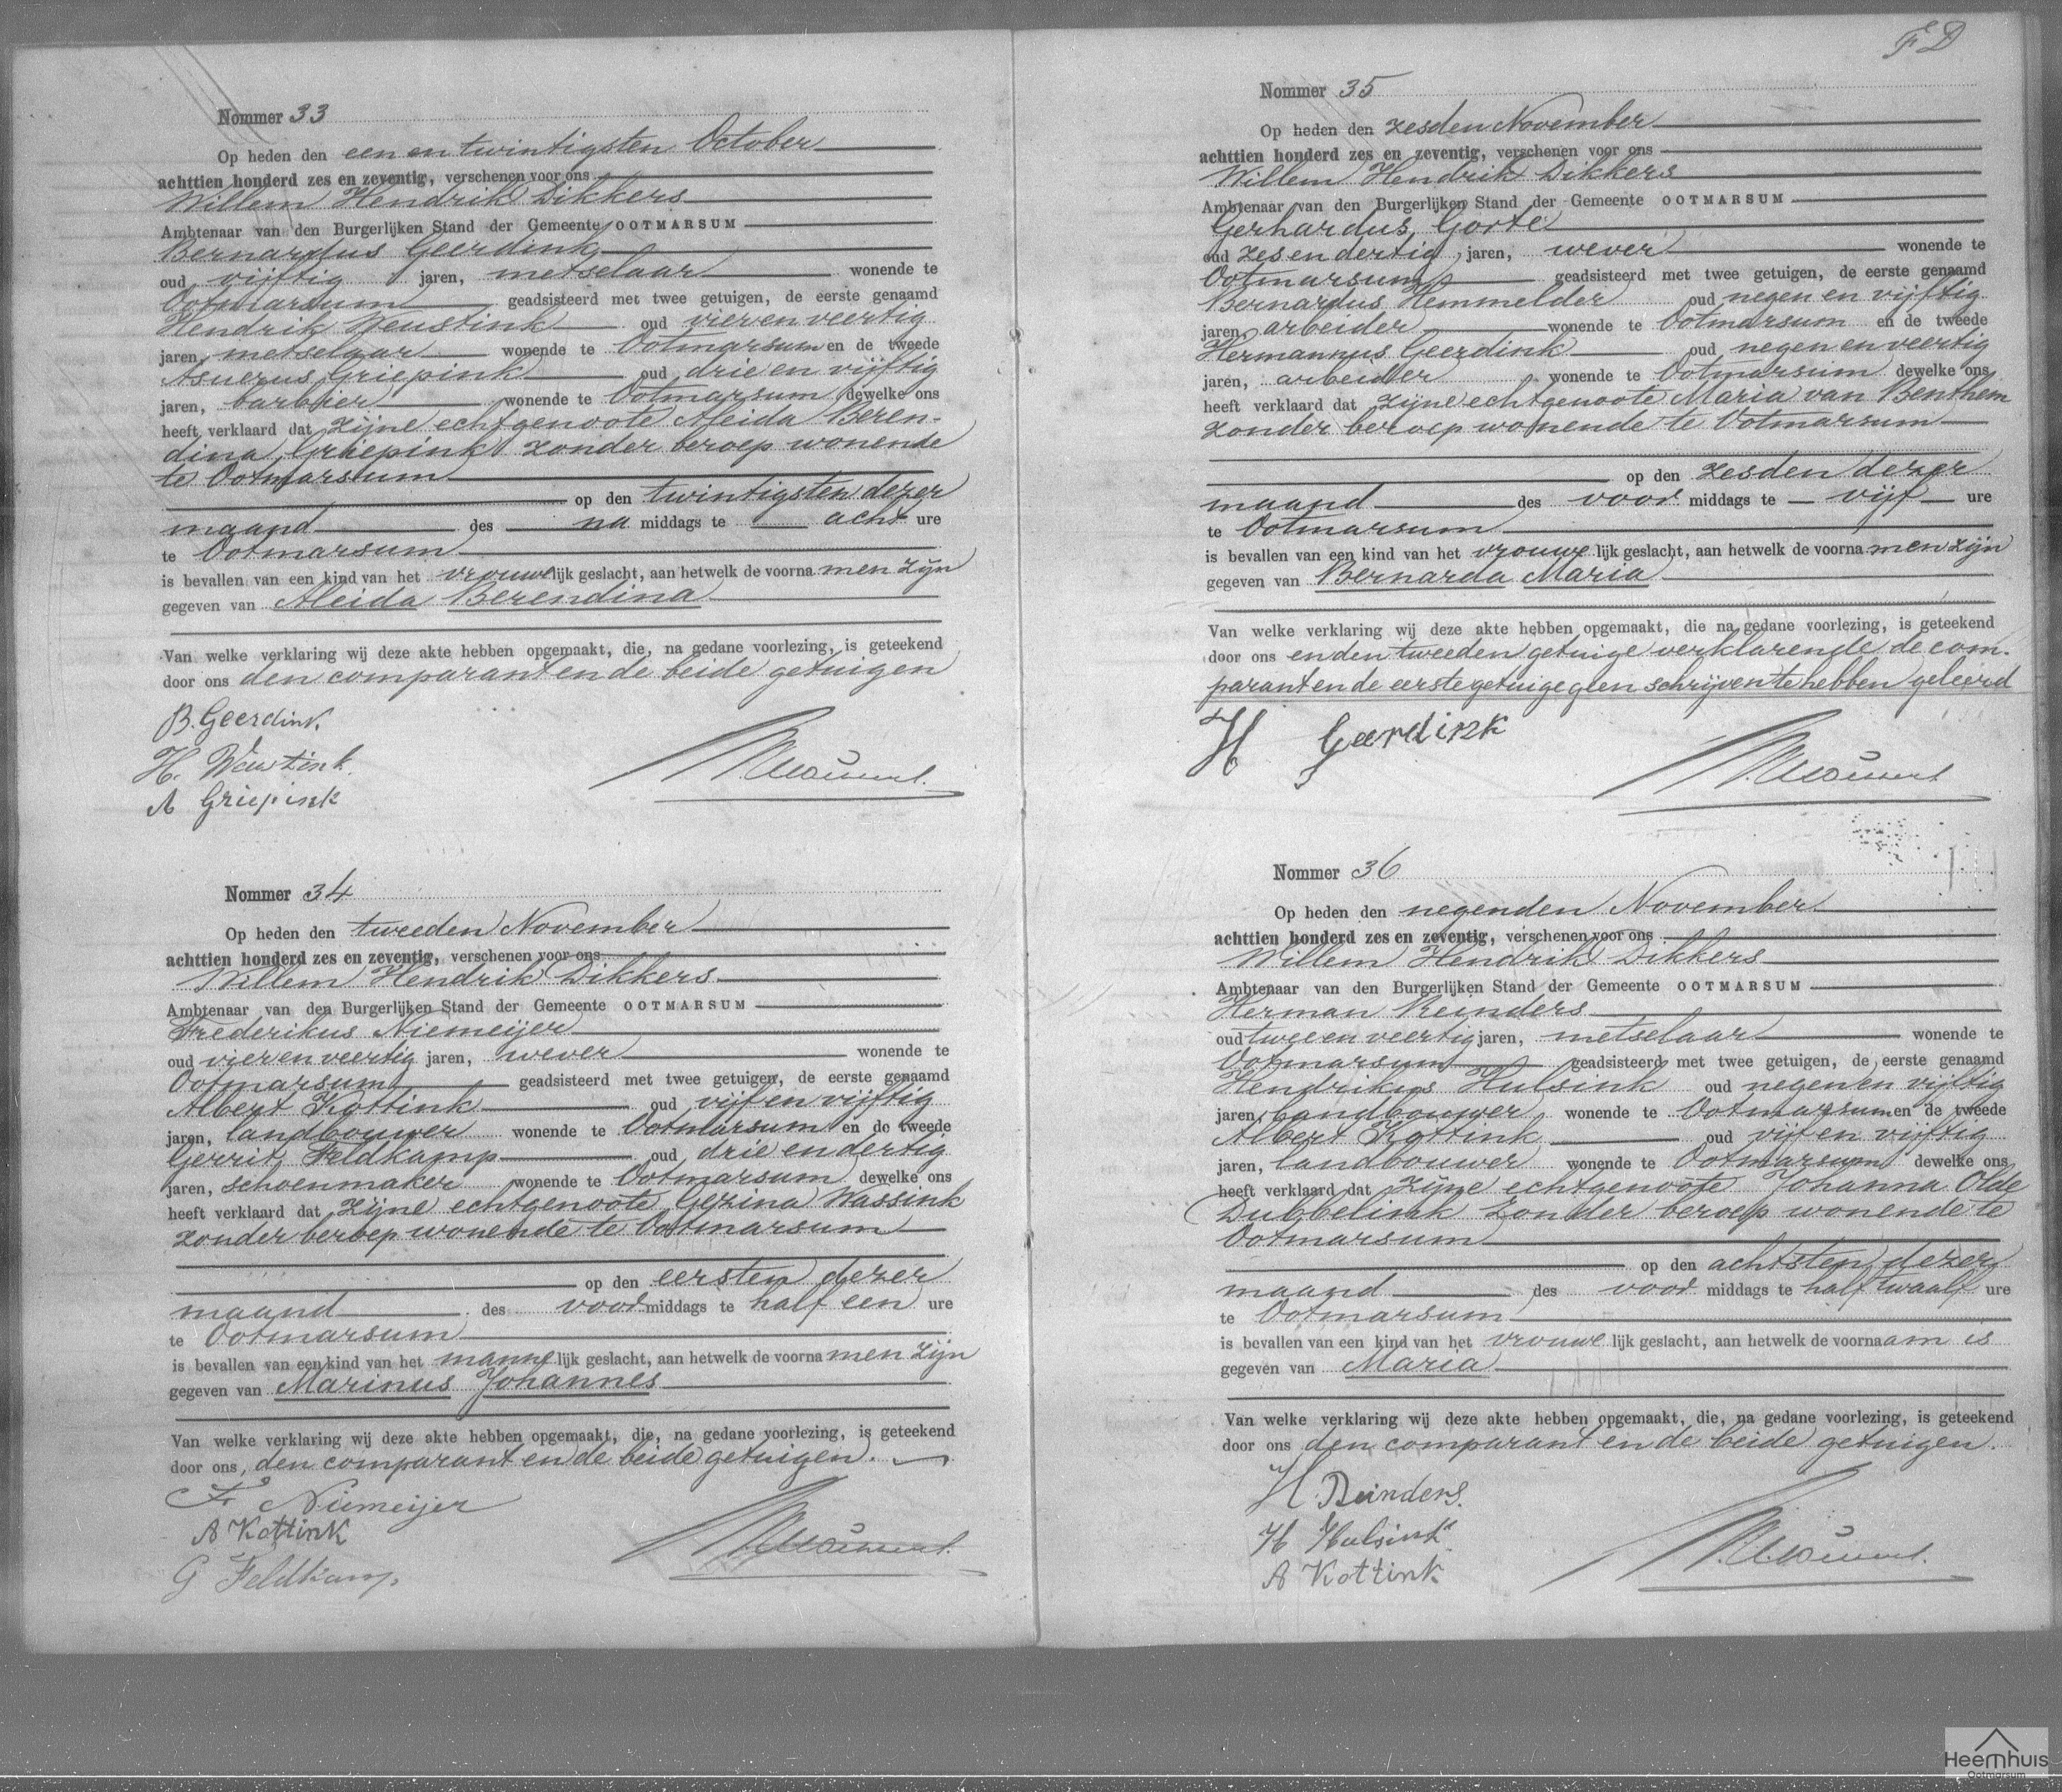 Nommer 33
Op heden den een en twintigsten October
achttien honderd zes en zeventig, verschenen voor ons
Willem Hendrik Dikkers
Ambtenaar van den Burgerlijken Stand der Gemeente OOTMARSUM
Bernardus Geerdink
oud vijftig jaren, metselaar wonende te
Ootmarsum geadsisteerd met twee getuigen, de eerste genaamd
Hendrik Weustink oud vier en veertig
jaren, metselaar wonende te Ootmarsum en de tweede
Asuerus Griepink oud drie en vijftig
jaren, barbier wonende te Ootmarsum dewelke ons
heeft verklaard dat zijne echtgenoote Aleida Beren-
dina Griepink zonder beroep wonende
te Ootmarsum
op den twintigsten dezer
maand des na middags te acht ure
te Ootmarsum
is bevallen van een kind van het vrouwelijk geslacht, aan hetwelk de voornamen zijn
gegeven van Aleida Berendina
Van welke verklaring wij deze akte hebben opgemaakt, die, na gedane voorlezing, is geteekend
door ons den comparant en de beide getuigen
B. Geerdink.
H. Weustink.
A Griepink
Nommer 34
Op heden den tweeden November
achttien honderd zes en zeventig, verschenen voor ons
Willem Hendrik Dikkers
Ambtenaar van den Burgerlijken Stand der Gemeente OOTMARSUM
Frederikus Niemeijer
oud vier en veertig jaren, wever wonende te
Ootmarsum geadsisteerd met twee getuigen, de eerste genaamd
Albert Kottink oud vijf en vijftig
jaren, landbouwer wonende te Ootmarsum en de tweede
Gerrit Feldkamp oud drie en dertig
jaren, schoenmaker wonende te Ootmarsum dewelke ons
heeft verklaard dat zijne echtgenoote Gezina Wassink
zonder beroep wonende te Ootmarsum
op den eersten dezer
maand des voor middags te half een ure
te Ootmarsum
is bevallen van een kind van het mannelijk geslacht, aan hetwelk de voornamen zijn
gegeven van Marinus Johannes
Van welke verklaring wij deze akte hebben opgemaakt, die, na gedane voorlezing, is geteekend
door ons, den comparant en de beide getuigen.
F. Niemeijer
A Kottink
G Feldkamp.
F D
Nommer 35
Op heden den zesden November
achttien honderd zes en zeventig, verschenen voor ons
Willem Hendrik Dikkers
Ambtenaar van den Burgerlijken Stand der Gemeente OOTMARSUM
Gerhardus Gorte
oud zes en dertig jaren, wever wonende te
Ootmarsum geadsisteerd met twee getuigen, de eerste genaamd
Bernardus Hemmelder oud negen en vijftig
jaren arbeider wonende te Ootmarsum en de tweede
Hermannus Geerdink oud negen en veertig
jaren, arbeider wonende te Ootmarsum dewelke ons
heeft verklaard dat zijne echtgenoote Maria van Benthem
zonder beroep wonende te Ootmarsum
op den zesden dezer
maand des voor middags te vijf ure
te Ootmarsum
is bevallen van een kind van het vrouwelijk geslacht, aan hetwelk de voornamen zijn
gegeven van Bernarda Maria
Van welke verklaring wij deze akte hebben opgemaakt, die, na gedane voorlezing, is geteekend
door ons en den tweeden getuige verklarende de com-
parant en de eerste getuige geen schrijven te hebben geleerd
H Geerdink
Nommer 36
Op heden den negenden November
achttien honderd zes en zeventig, verschenen voor ons
Willem Hendrik Dikkers
Ambtenaar van den Burgerlijken Stand der Gemeente OOTMARSUM
Herman Reinders
oud twee en veertig jaren, metselaar wonende te
Ootmarsum geadsisteerd met twee getuigen, de eerste genaamd
Hendrikus Hulsink oud negen en vijftig
jaren, landbouwer wonende te Ootmarsum en de tweede
Albert Kottink oud vijf en vijftig
jaren, landbouwer wonende te Ootmarsum dewelke ons
heeft verklaard dat zijne echtgenoote Johanna Olde
Dubbelink zonder beroep wonende te
Ootmarsum
op den achtsten dezer
maand des voor middags te half twaalf ure
te Ootmarsum
is bevallen van een kind van het vrouwelijk geslacht, aan hetwelk de voornaam is
gegeven van Maria
Van welke verklaring wij deze akte hebben opgemaakt, die, na gedane voorlezing, is geteekend
door ons den comparant en de beide getuigen.
H. Reinders.
H Hulsink
A Kottink
Heemhuis
Ootmarsum